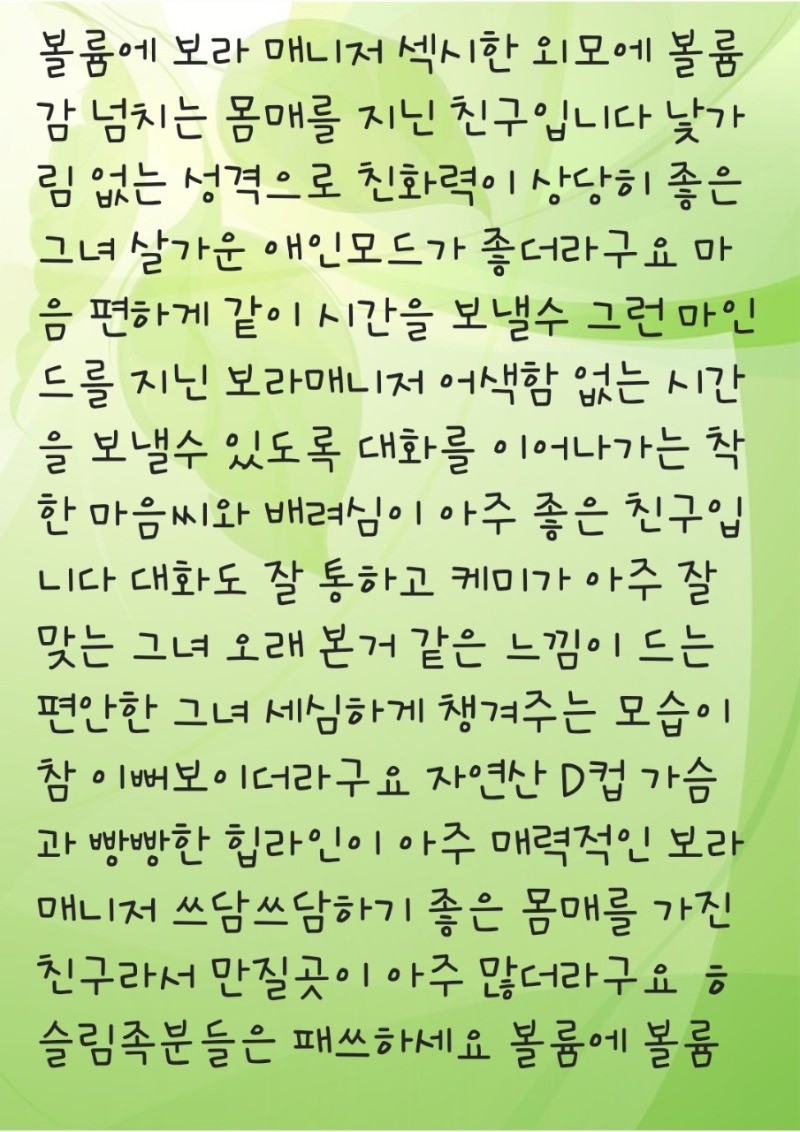 볼륨에 보라 매니저 섹시한 외모에 볼륨
감 넘치는 몸매를 지닌 친구입니다 낯가
림 없는 성격으로 친화력이 상당히 좋은
그녀 살가운 애인모드가 좋더라구요 마
음 편하게 같이 시간을 보낼수 그런 마인
드를 지닌 보라매니저 어색함 없는 시간
을 보낼수 있도록 대화를 이어나가는 착
한 마음씨와 배려심이 아주 좋은 친구입
니다 대화도 잘 통하고 케미가 아주 잘
맞는 그녀 오래 본거 같은 느낌이 드는
편안한 그녀 세심하게 챙겨주는 모습이
참 이뻐보이더라구요 자연산 D컵 가슴
과 빵빵한 힙라인이 아주 매력적인 보라
매니저 쓰담쓰담하기 좋은 몸매를 가진
친구라서 만질곳이 아주 많더라구요 ㅎ
슬림족분들은 패쓰하세요 볼륨에 볼륨